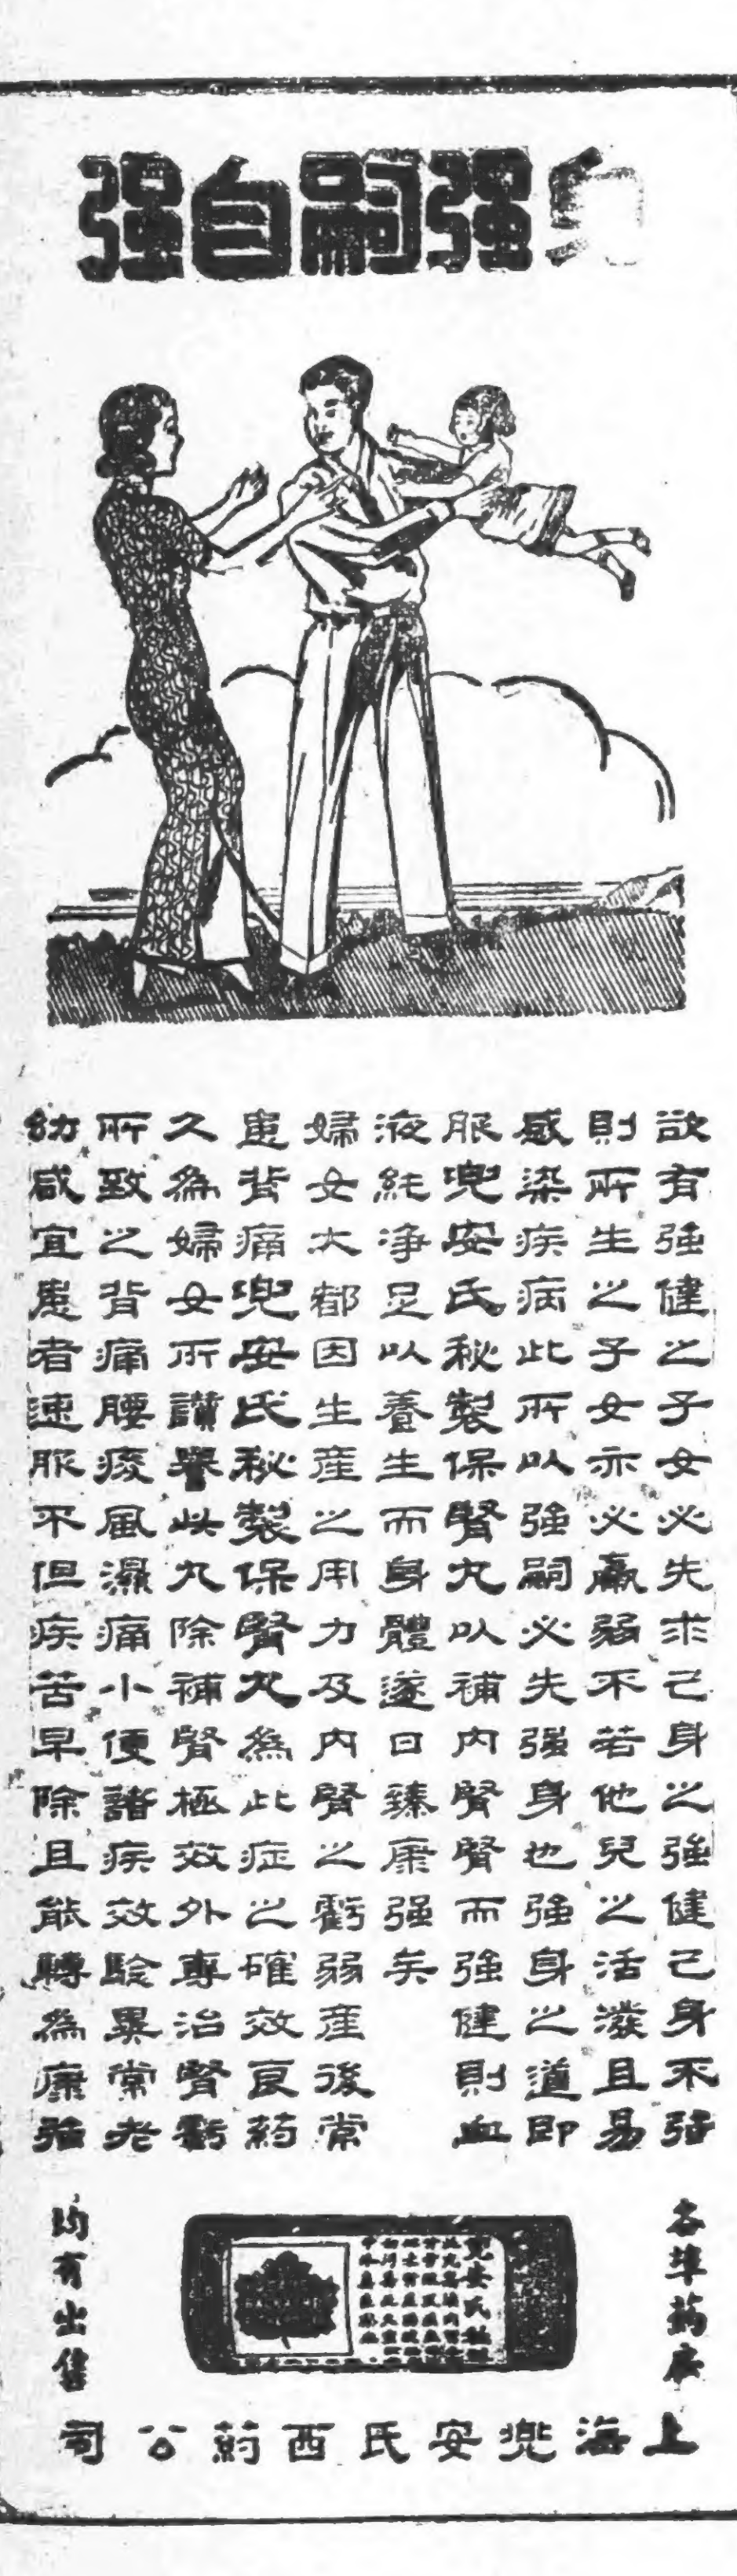 自強嗣強身
欲有強健之子女必先求己身之強健己身不强
則所生之子女亦必羸弱不若他兒之活潑且易
感染疾病此所以強嗣必先强身也強身之道即
服兜安氏秘製保腎丸以補內腎腎而強健則血
液純净足以養生而身體遂日臻康强矣
婦女大都因生產之用力及內腎之虧弱產後常
患背痛兜安氏秘製保腎丸為此症之確效良葯
久為婦女所讚譽此丸除補腎極效外專治腎虧
所致之背痛腰痠風濕痛小便諸疾效驗異常老
幼咸宜患者速服不但疾苦早除且能轉為康强
各埠葯房
均有出售
兜安氏秘製
上海兜安氏西葯公司